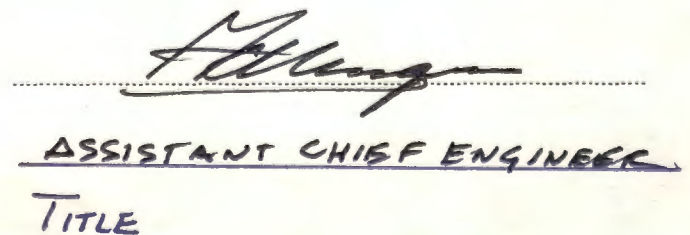 ASSISTANT CHIEF ENGINEER
TITLE